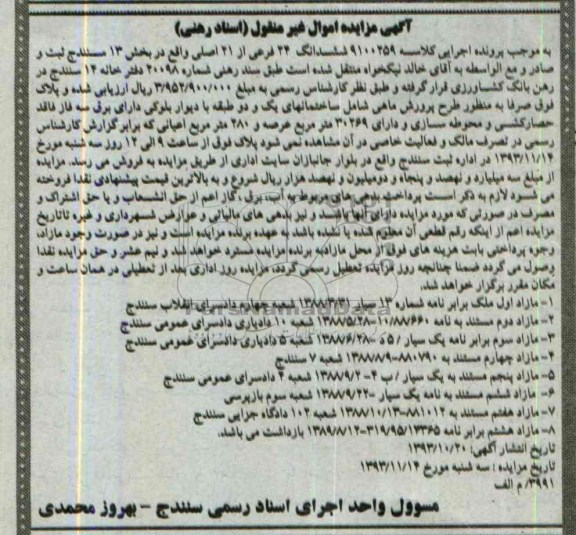 آگهی مزایده اموال غیر منقول (اسناد رهنی)
به موجب پرونده اجرایی کلاسه ۹۱۰۰۲۵۹ ششدانگ ۲۴ فرعی از ۲۱ اصلی واقع در بخش ۱۳ سنندج ثبت و
صادر و مع الواسطه به آقای خالد نیکخواه منتقل شده است طبق سند رهنی شماره ۲۰۰۹۸ دفتر خانه ۱۴ سنندج در
رهن بانک کشاورزی قرار گرفته و طبق نظر کارشناس رسمی به مبلغ ۳/۹۵۲/۹۰۰/۰۰۰ ریال ارزیابی شده و پلاک
فوق صرفا به منظور طرح پرورش ماهی شامل ساختمانهای یک و دو طبقه با دیوار بلوکی دارای برق سه فاز فاقد
حصارکشی و محوطه سازی و دارای ۳۰۲۶۹ متر مربع عرصه و ۲۸۰ متر مربع اعیانی که برابر گزارش کارشناس
رسمی در تصرف مالک و فعالیت خاصی در آن مشاهده نمی شود پلاک فوق از ساعت ۹ الی ۱۲ روز سه شنبه مورخ
۱۳۹۳/۱۱/۱۴ در اداره ثبت سنندج واقع در بلوار جانبازان سایت اداری از طریق مزایده به فروش می رسد. مزایده
از مبلغ سه میلیارد و نهصد و پنجاه و دومیلیون و نهصد هزار ریال شروع و به بالاترین قیمت پیشنهادی نقدا فروخته
می شود لازم به ذکر است پرداخت بدهی های مربوط به آب، برق، گاز اعم از حق انشعاب و یا حق اشتراک و
مصرف در صورتی که مورد مزایده دارای آنها باشد و نیز بدهی های مالیاتی و عوارض شهرداری و غیره تا تاریخ
مزایده اعم از اینکه رقم قطعی آن معلوم شده یا نشده باشد به عهده برنده مزایده است و نیز در صورت وجود مازاد،
وجوه پرداختی بابت هزینه های فوق از محل مازاد به برنده مزایده مسترد خواهد شد و نیم عشر و حق مزایده نقدا
وصول می گردد ضمنا چنانچه روز مزایده تعطیل رسمی گردد، مزایده روز اداری بعد از تعطیلی در همان ساعت و
مکان مقرر برگزار خواهد شد.
۱- مازاد اول ملک برابر نامه شماره ۱۳ سیار ۱۳۸۸/۳/۳۱ شعبه چهارم دادسرای انقلاب سنندج
۲- مازاد دوم مستند به نامه ۱۰/۸۸/۶۶۰-۱۳۸۸/۵/۲۸ شعبه ۱۰ دادیاری دادسرای عمومی سنندج
۳- مازاد سوم برابر نامه یک سیار / ۵د -۱۳۸۸/۶/۲۸ شعبه ۵ دادیاری دادسرای عمومی سنندج
۴- مازاد چهارم مستند به ۸۸۰۷۹۰-۱۳۸۸/۸/۹ شعبه ۷ سنندج
۵- مازاد پنجم مستند به یک سیار / ب ۴- ۱۳۸۸/۹/۲ شعبه ۴ دادسرای عمومی سنندج
۶- مازاد ششم مستند به نامه یک سیار -۱۳۸۸/۹/۲۲ شعبه سوم بازپرسی
۷- مازاد هفتم مستند به ۸۸۱۰۱۲-۱۳۸۸/۱۰/۱۳ شعبه ۱۰۲ دادگاه جزایی سنندج
۸- مازاد هشتم برابر نامه ۳۱۹/۹۵/۱۳۳۶۵-۱۳۸۹/۸/۱۲ بازداشت می باشد.
تاریخ انتشار آگهی: ۱۳۹۳/۱۰/۲۰
تاریخ مزایده : سه شنبه مورخ ۱۳۹۳/۱۱/۱۴
۳۹۹۱/ م الف
مسوول واحد اجرای اسناد رسمی سنندج – بهروز محمدی